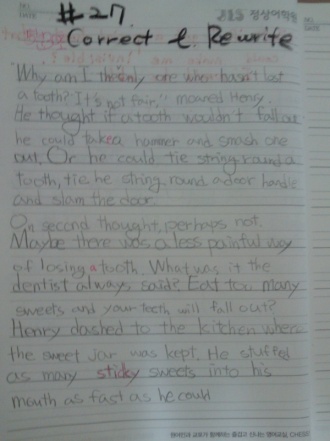 #27.
정상어학원
Correct & Rewrite
"Why am I the only one who hasn't lost
a tooth? It's not fair," moaned Henry.
He thought if a tooth wouldn't fall out
he could take a hammer and smash one
out. Or he could tie string round a
tooth, tie he string round a door handle
and slam the door.
On second thought, perhaps not.
Maybe there was a less painful way
of losing a tooth. What was it the
dentist always said? Eat too many
sweets and your teeth will fall out?
Henry dashed to the kitchen where
the sweet jar was kept. He stuffed
as many sticky sweets into his
mouth as fast as he could